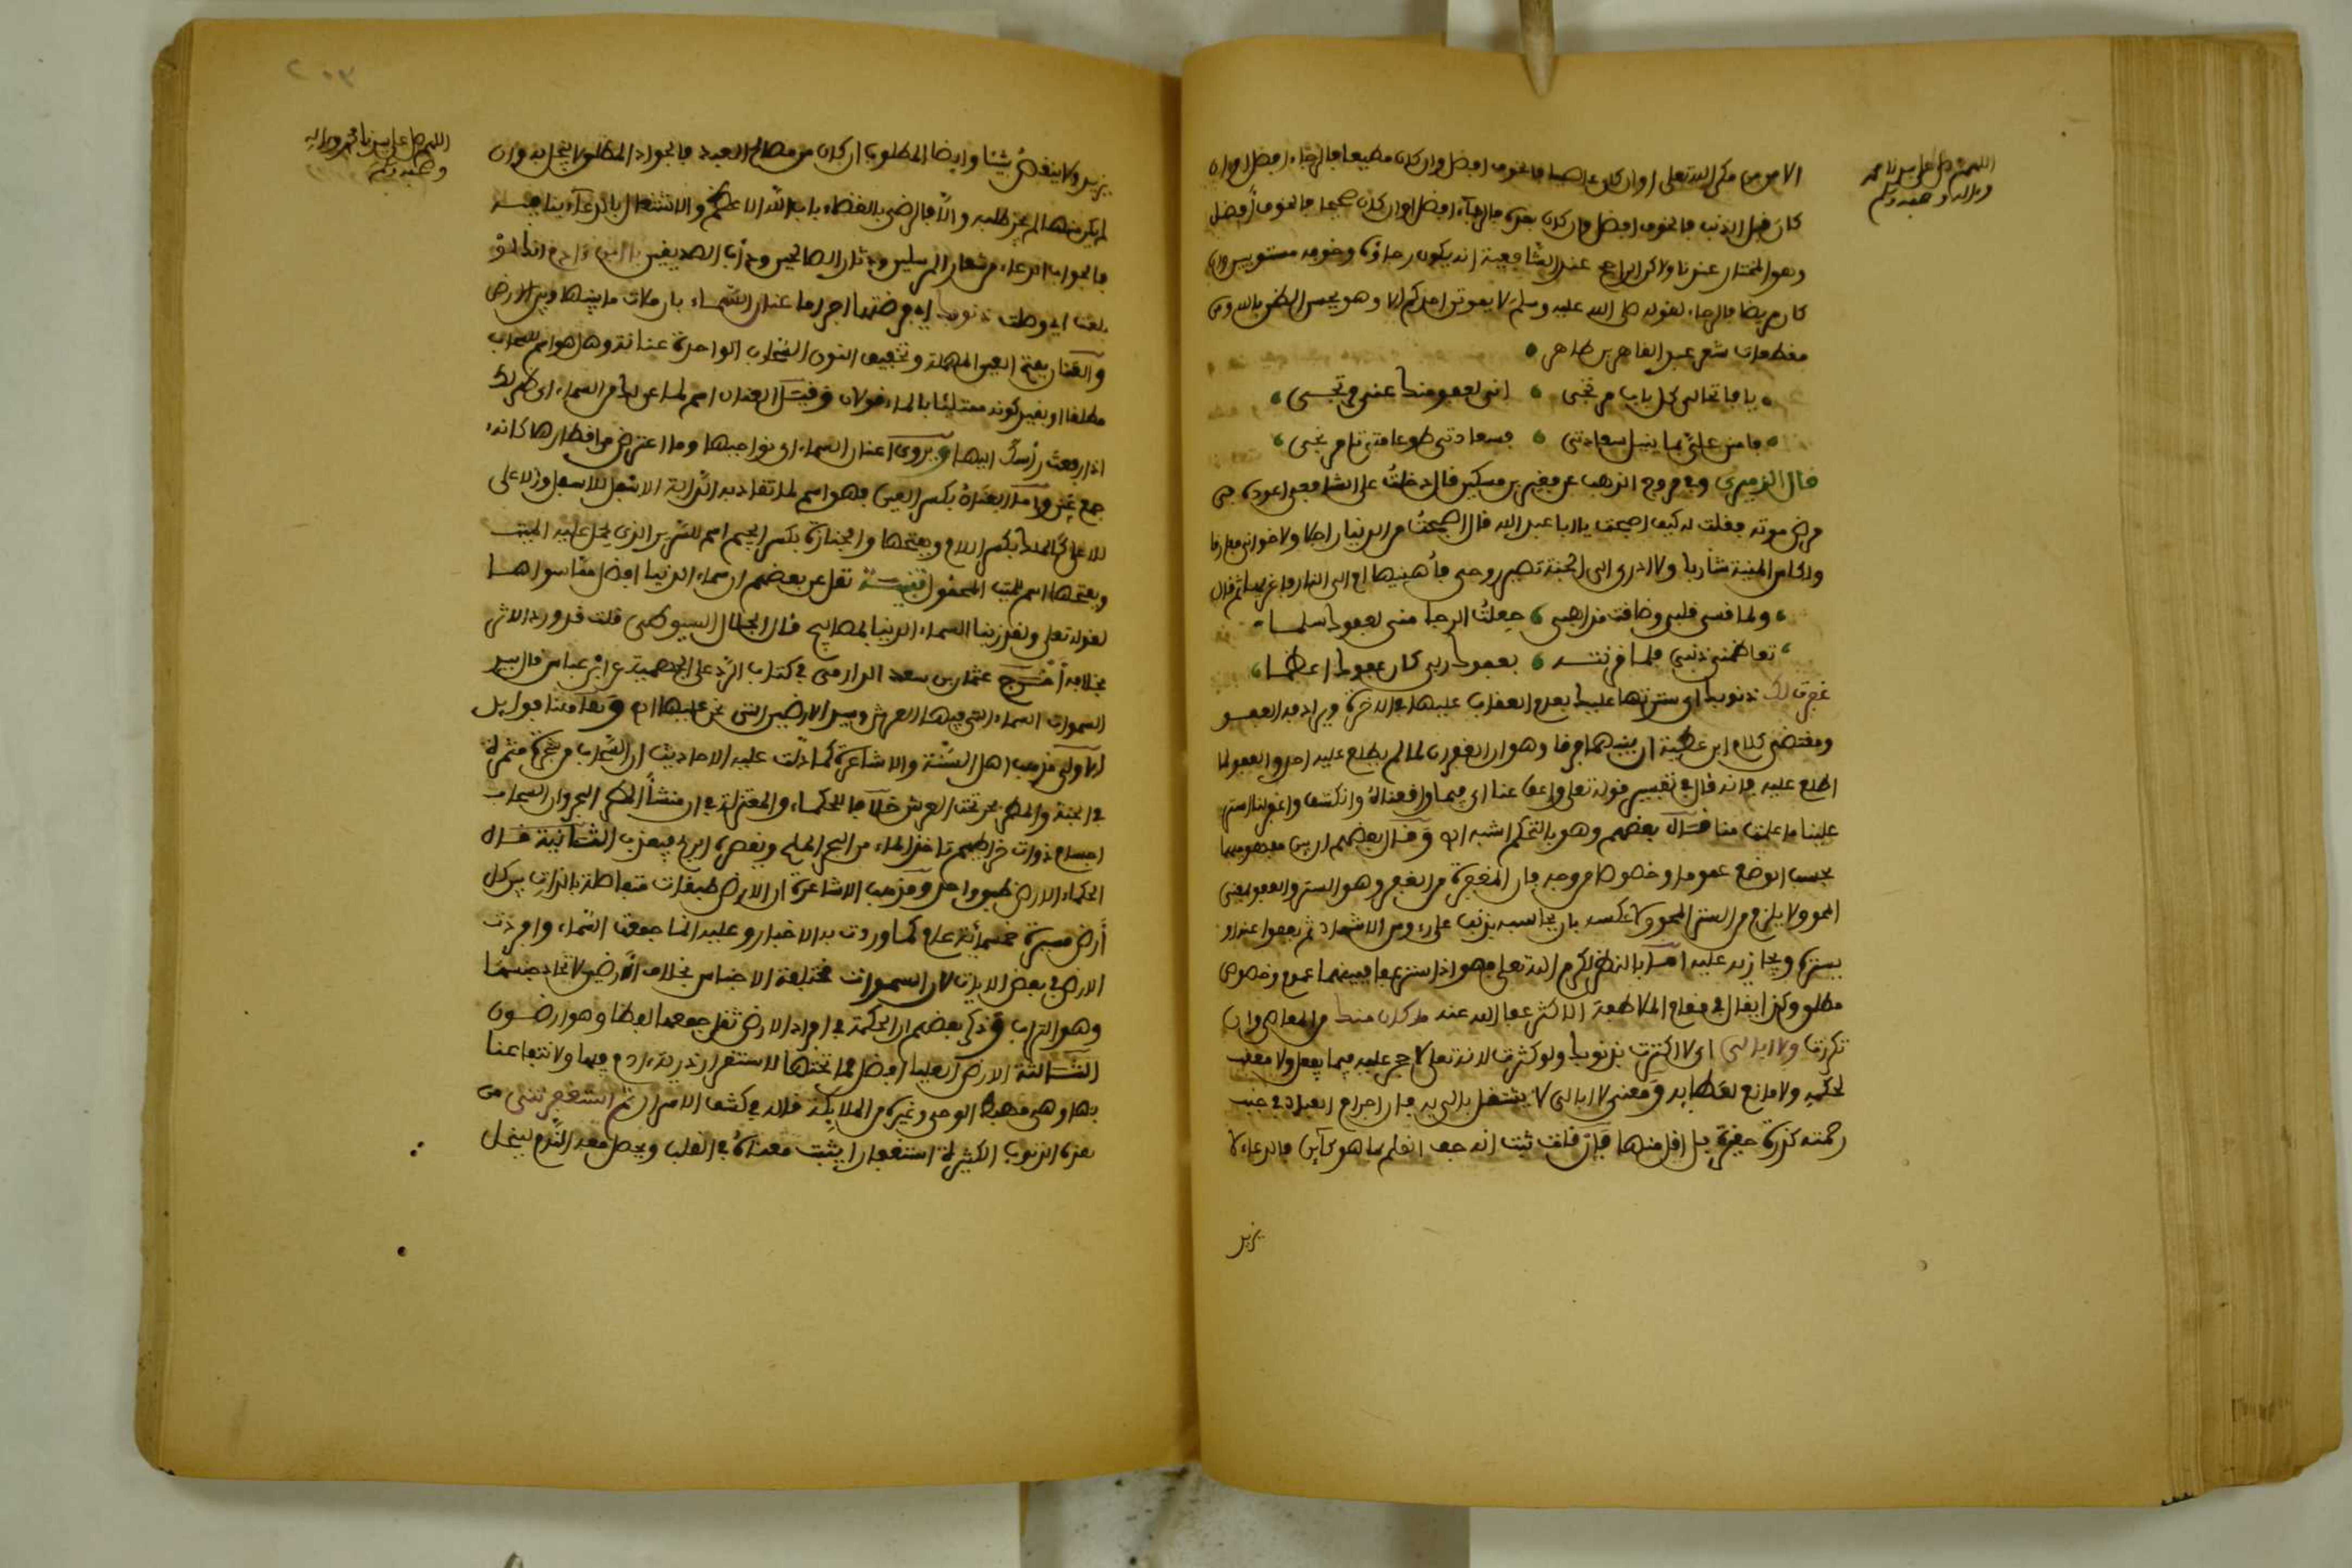 اللهم صل على سيدنا محمد
وءاله وصحبه وسلم
الامن من مكر الله تعلى او ان كان عاصيا فالخوف افضل وان كان مطيعا فالرجاء افضل او ان
كان قبل الذنب فالخوف افضل وان كان بعده فالرجاء افضل او ان كان صحيحا فالخوف أفضل
وهو المختار عندنا ولاكن الراجح عند الشافعية انه يكون رجاؤه وخوفه مستويين وان
كان مريضا فالرجاء لقوله صلى الله عليه وسلم لا يموتن احدكم الا وهو يحسن الظن بالله ومن
مقطعات شعر عبد القاهر بن طاهر
يا فاتحا لى كل باب مرتجى انى لعفو منك عنى مرتجى
فامنن علىّ بما ينيل سعادتى فسعادتى طوعا متى تامر تجى
قال الدميرى وفى مروج الذهب عن فقير بن مسكين قال دخلت على الشافعى اعوده فى
مرض موته فقلت له كيف اصبحت يا ابا عبد الله قال اصبحت من الدنيا راحلا ولاخوانى مفارقا
ولكاس المنية شاربا ولا ادرى الى الجنة تصير روحى فأهنيها ام الى النار فاعزيها ثم قال
ولما قسى قلبى وضاقت مذاهبى جعلت الرجا منى لعفوك سلما
تعاظمنى ذنبى فلما قرنته بعفوك ربى كان عفوك اعظما
غفرت لك ذنوبك اى سترتها عليك بعدم العقاب عليها فى الاخرة ويرادفه العفو
ومقتضى كلام ابن عطية ان بينهما فرقا وهو ان الغفران لما لم يطلع عليه احد والعفو لما
اطلع عليه فانه قال فى تفسير قوله تعلى واعف عنا اى فيما واقعناه وانكشف واغفر لنا استر
علينا ما علمت منا قال بعضهم وهو بالتحكم اشبه اه وقال بعضهم ان بين مفهوميهما
بحسب الوضع عموما وخصوصا من وجه فان المغفرة من الغفر وهو الستر والعفو بمعنى
المحو ولا يلزم من الستر المحو ولا عكسه بان يحاسبه بذنب على رءوس الاشهاد ثم يعفو عنه او
يستره ويجازيه عليه اما بالنظر لكرم الله تعلى فهو اذا ستر عفا فبينهما عموم وخصوص
مطلق وكذا يقال فى مقام الملاطفة الاكثر عفا الله عنه ما كان منك من المعاصى وان
تكررت ولا ابالى اى لا اكترث بذنوبك ولو كثرت لانه تعلى لا حجر عليه فيما يفعل ولا معقب
لحكمه ولا مانع لعطايه ومعنى لا ابالى لا يشتغل بالى به فان اجرام العباد فى جنب
رحمته كذرة حقيرة بل اقل منها فان قلت ثبت انه جف القلم بما هو كاين فالدعاء لا
يزيد
اللهم صل على سيدنا محمد وءاله
وصحبه وسلم
يزيد ولا ينقص شيئا وايضا المطلوب ان كان من مصالح العبد فالجواد المطلق لا يبخل به وان
لم يكن منها لم يجز طلبه والا فالرضى بالقضاء باب الله الاعظم والاشتغال بالدعاء ينافيه
فالجواب الدعاء من شعار المرسلين ودثار الصالحين ودأب الصديقين يا ابن ءادم انه لو
بلغت اى وصلت ذنوبك اى فرضتها اجراما عنان السماء بان ملات ما بينها وبين الارض
والعنان بفتح العين المهملة وتخفيف النون السحاب الواحدة عنانة وهل هو اسم للسحاب
مطلقا او بقيد كونه ممتلئا بالماء قولان وقيل العنان اسم لما عن لك من السماء اى ظهر لك
اذا رفعت رأسك اليها ويروى اعنان السماء اى نواحيها وما اعترض من اقطارها كانه
جمع عنن واما العنان بكسر العين فهو اسم لما تقاد به الدابة الاسفل للاسفل والاعلى
للاعلى كالملاك بكسر اللام وبفتحها والجنازة بكسر الجيم اسم للسرير الذى يحمل عليه الميت
وبفتحها اسم للميت المحمول تنبيه نقل عن بعضهم ان سماء الدنيا افضل مما سواها
لقوله تعلى ولقد زينا السماء الدنيا بمصابيح قال الجلال السيوطى قلت قد ورد الاثر
بخلافه أخرج عثمان بن سعد الدارمى فى كتاب الرد على الجهمية عن ابن عباس قال سيد
السموات السماء التى فيها العرش وسيد الارضين التى نحن عليها اه وهاهنا فوايد
الاولى مذهب اهل السنة والاشاعرة كما دلت عليه الاحاديث ان السحاب من شجرة مثمرة
فى الجنة والمطر بحر تحت العرش خلافا للحكماء والمعتزلة فى ان منشأ المطر البحر وان السحاب
اجسام ذوات خراطيم تاخذ الماء من البحر المالح وتقصره الريح فيعذب الثانية قال
الحكماء الارض طبق واحد ومذهب الاشاعرة ان الارض طبقات متفاضلة بالذات بين كل
أرض مسيرة خمسمائة عام كما وردت به الاخبار وعليه انما جمعت السماء وافردت
الارض فى بعض الايات لان السموات مختلفة الاجناس بخلاف الارض لاتحاد جنسها
وهو التراب وذكر بعضهم ان الحكمة فى افراد الارض ثقل جمعها لفظا وهو ارضون
الثالثة الارض العليا افضل مما تحتها لاستقرار ذرية ءادم فيها ولانتفاعنا
بها وهى مهبط الوحى وغيره من الملايكة قاله فى كشف الاسرار ثم استغفرتنى من
هذه الذنوب الكثيرة استغفارا يثبت معناه فى القلب ويحصل معه الندم لينحل